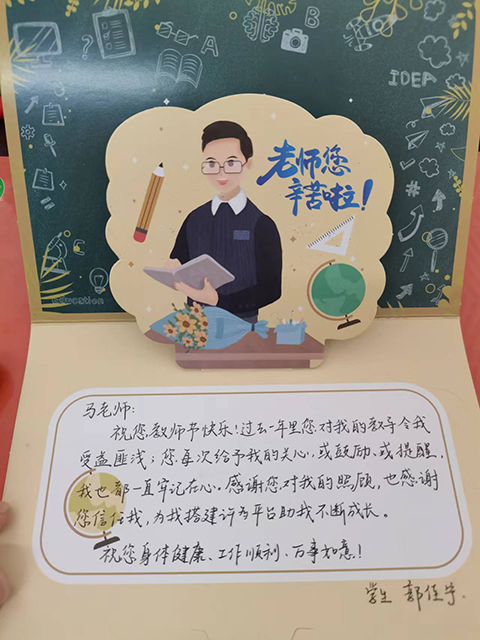 B
A
IDEA
老师您
辛苦啦!
马老师:
祝您教师节快乐!过去一年里您对我的教导令我
受益匪浅;您每次给予我的关心、或鼓励、或提醒,
我也都一直牢记在心。感谢您对我的照顾,也感谢
您信任我,为我搭建许为平台助我不断成长。
祝您身体健康、工作顺利、万事如意!
学生 郭佳宁.